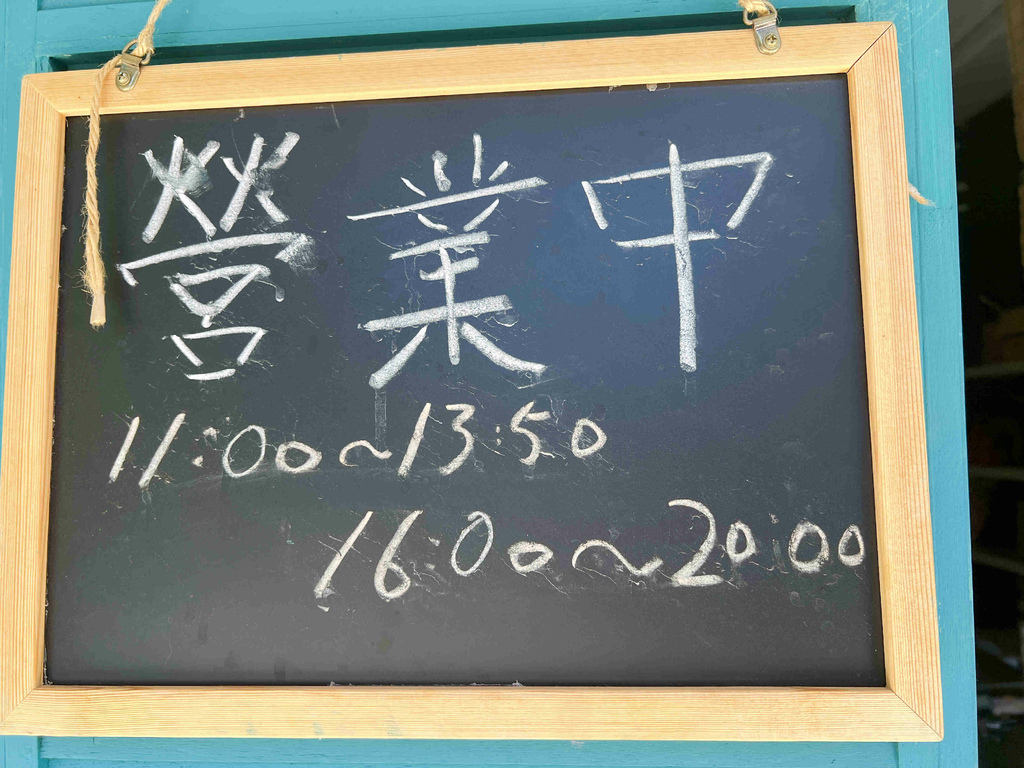 營業中
11:00~13:50
16:00~20:00